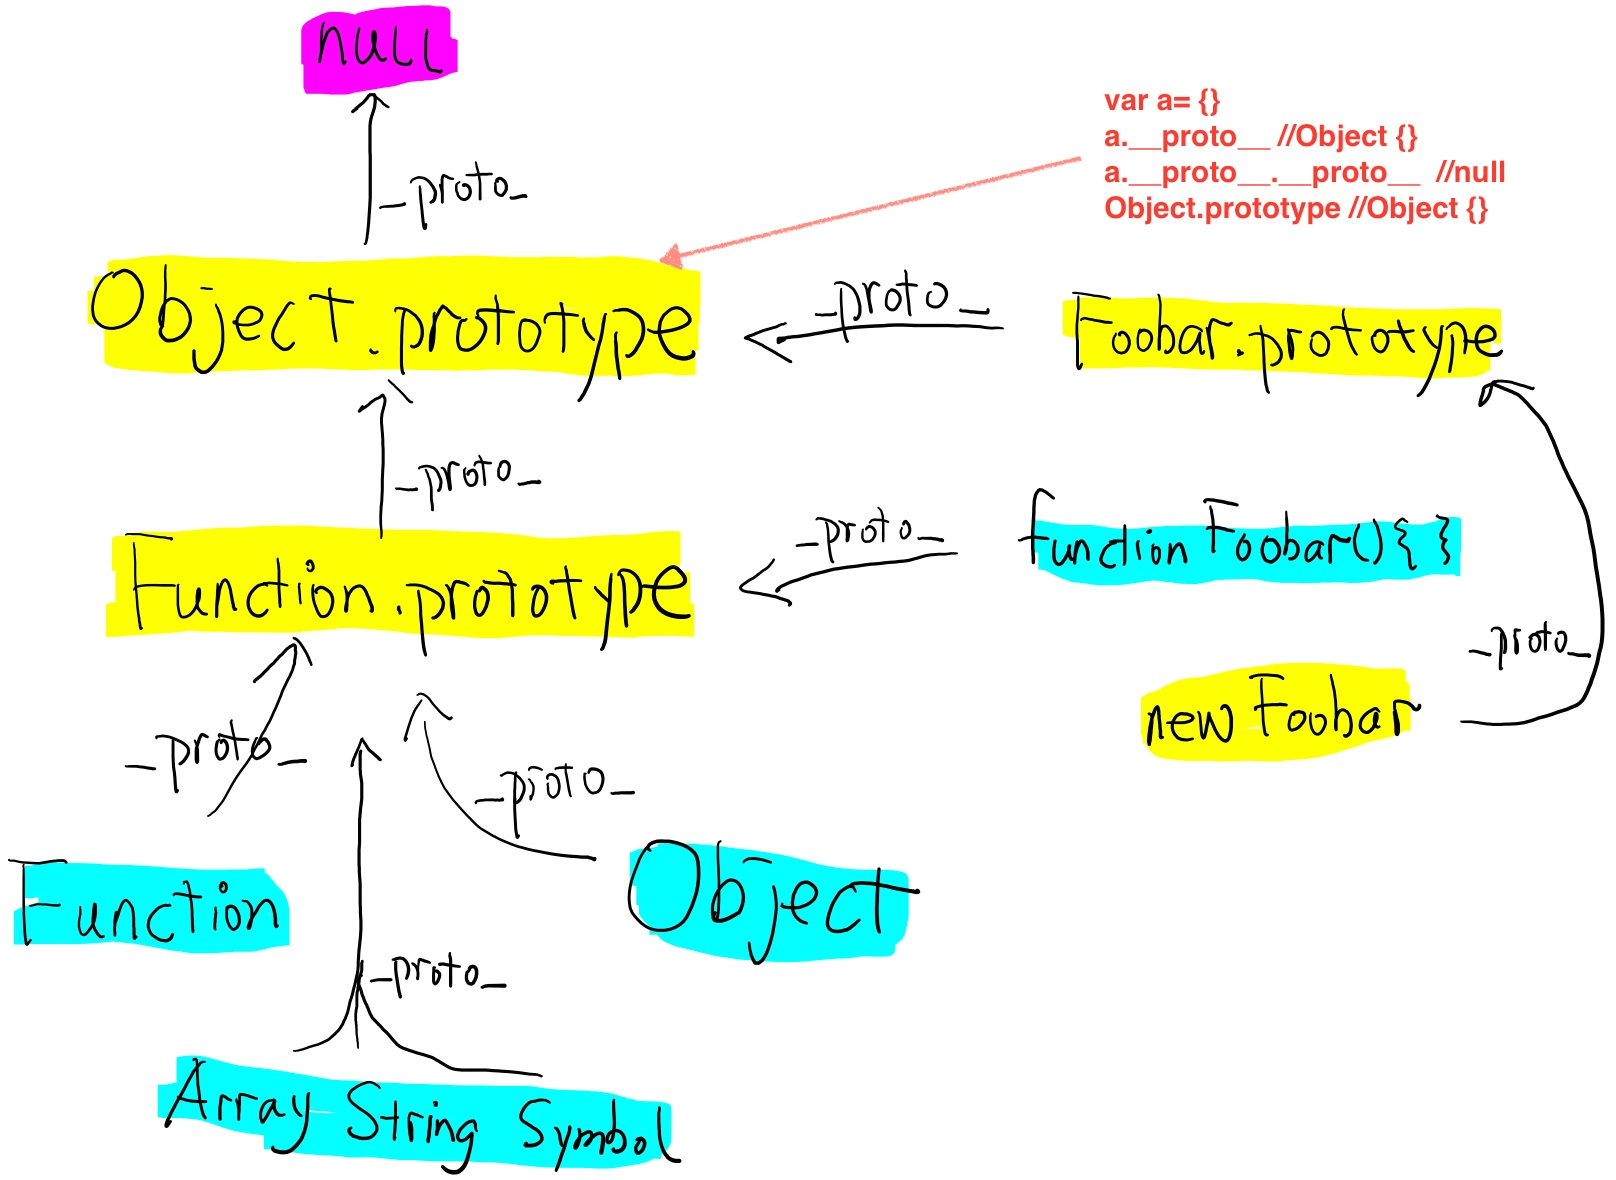 null
_proto_
var a= {}
a.__proto__ //Object {}
a.__proto__.__proto__  //null
Object.prototype //Object {}
Object.prototype
_proto_
Foobar.prototype
_proto_
_proto_
function Foobar(){ }
Function.prototype
_proto_
new Foobar
_proto_
_proto_
Function
Object
_proto_
Array String Symbol